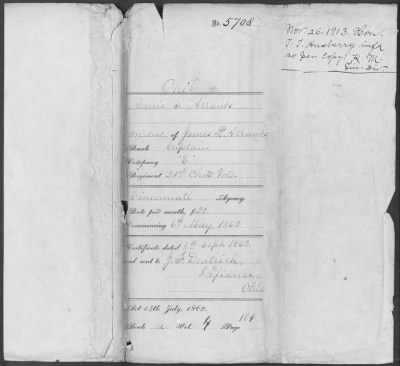 No. 5708
Nov. 26. 1913. Hon.
T. T. Ansberry info
as per copy. H. M
Ohio
Arrants
Widow of James L. Arrants
Rank Captain
Company "E"
Regiment 21st Ohio Vols.
Cincinnati Agency
Rate per month, $20
Commencing 6th May, 1862
Certificate dated 8th Sept. 1862
and sent to J.
Defiance
Ohio
Act 14th July, 1862.
Book A Vol. Page 164